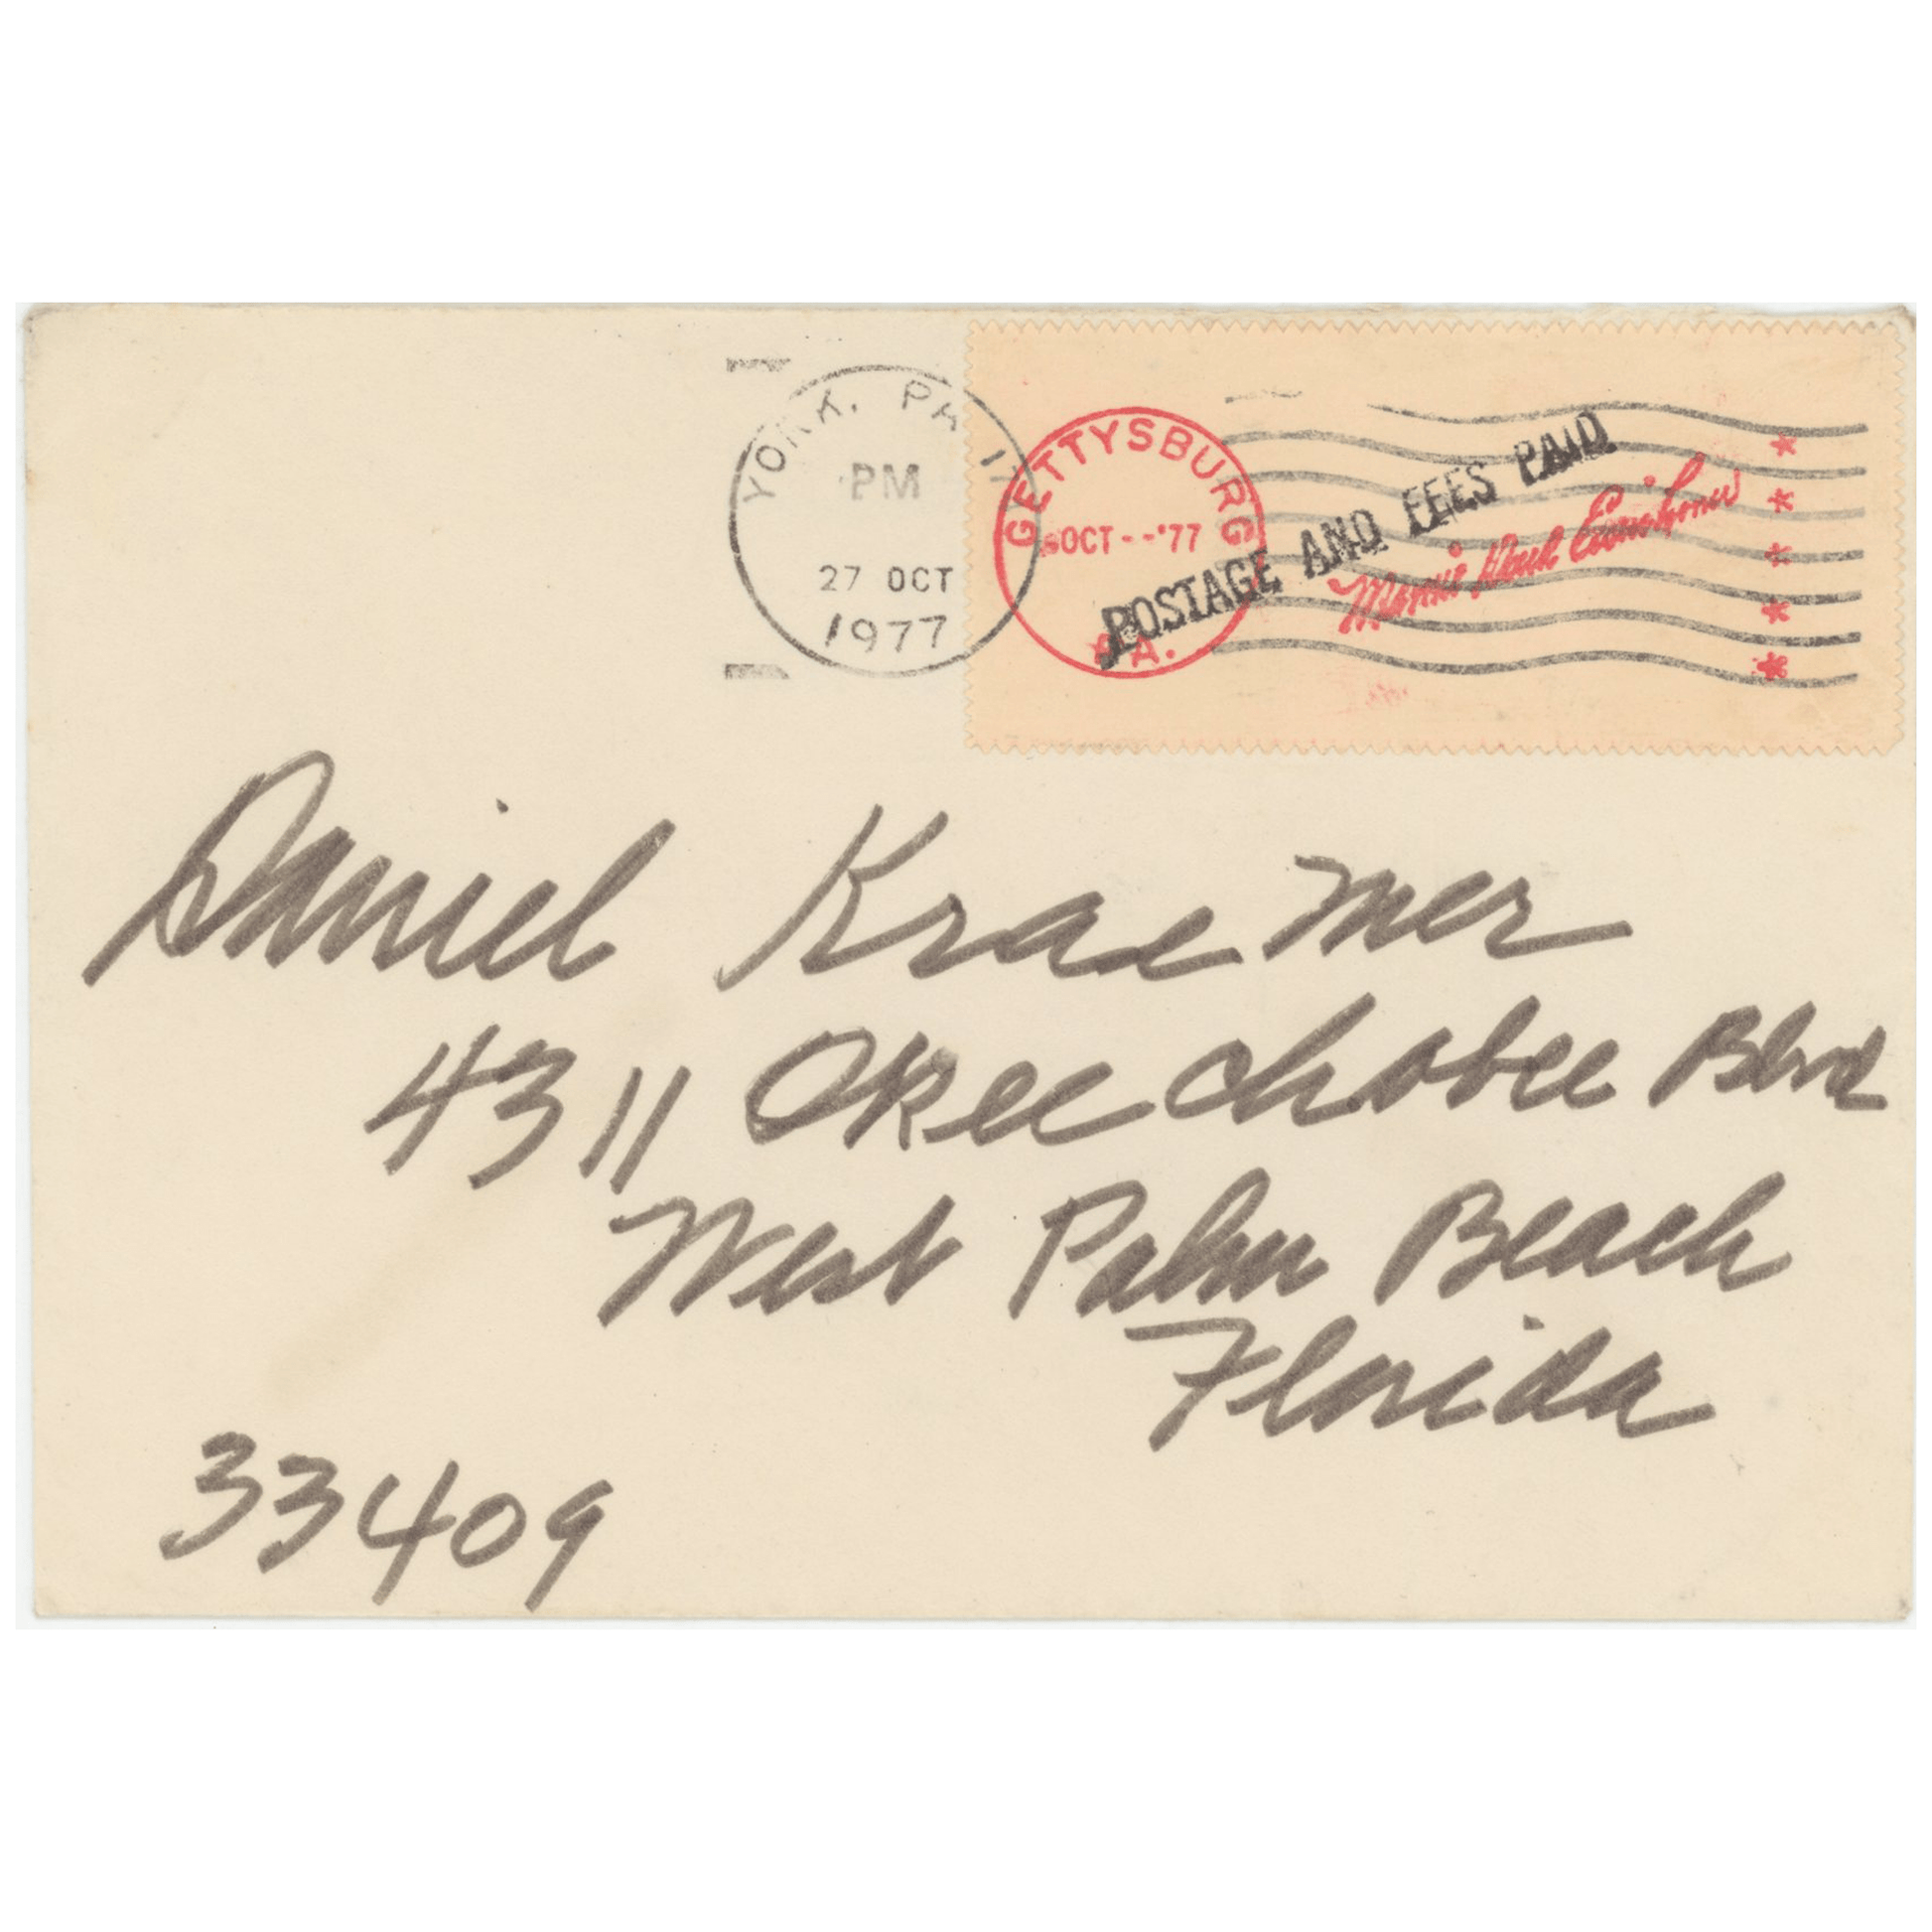 YORK, PA 17
PM
27 OCT
1977
GETTYSBURG
OCT--'77
PA.
POSTAGE AND FEES PAID
Mamie Doud Eisenhower
Daniel Kraemer
4311 Okeechobee Blvd
West Palm Beach
Florida
33409